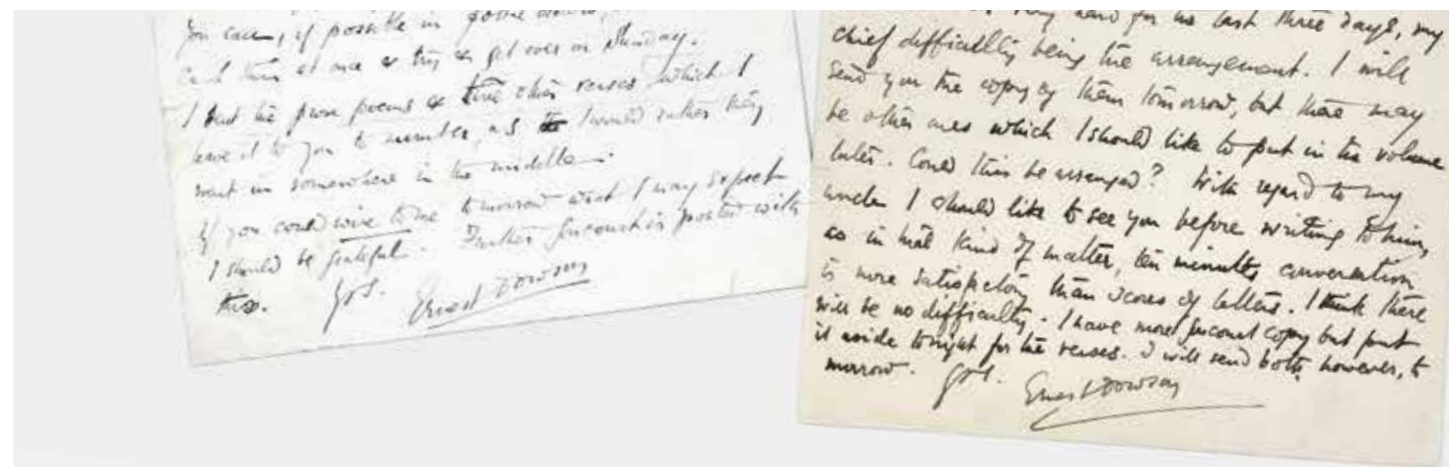 you can, if possible in
at once or try & get over on Sunday.
I put the prose poems as the other verses which I
leave it to you to number, as I would rather they
went in somewhere in the middle.
If you could wire to me tomorrow what I may expect
I should be grateful. Further Goncourt is posted with
this. Yrs. Ernest Dowson
very hard for the last three days, my
chief difficulty being the arrangement. I will
send you the copy of them tomorrow, but there may
be other ones which I should like to put in the volume
later. Could this be arranged? With regard to my
uncle I should like to see you before writing to him,
as in that kind of matter, ten minutes conversation
is more satisfactory than scores of letters. I think there
will be no difficulty. I have more Goncourt copy but put
it aside tonight for the verses. I will send both, however, to
morrow. Yrs. Ernest Dowson